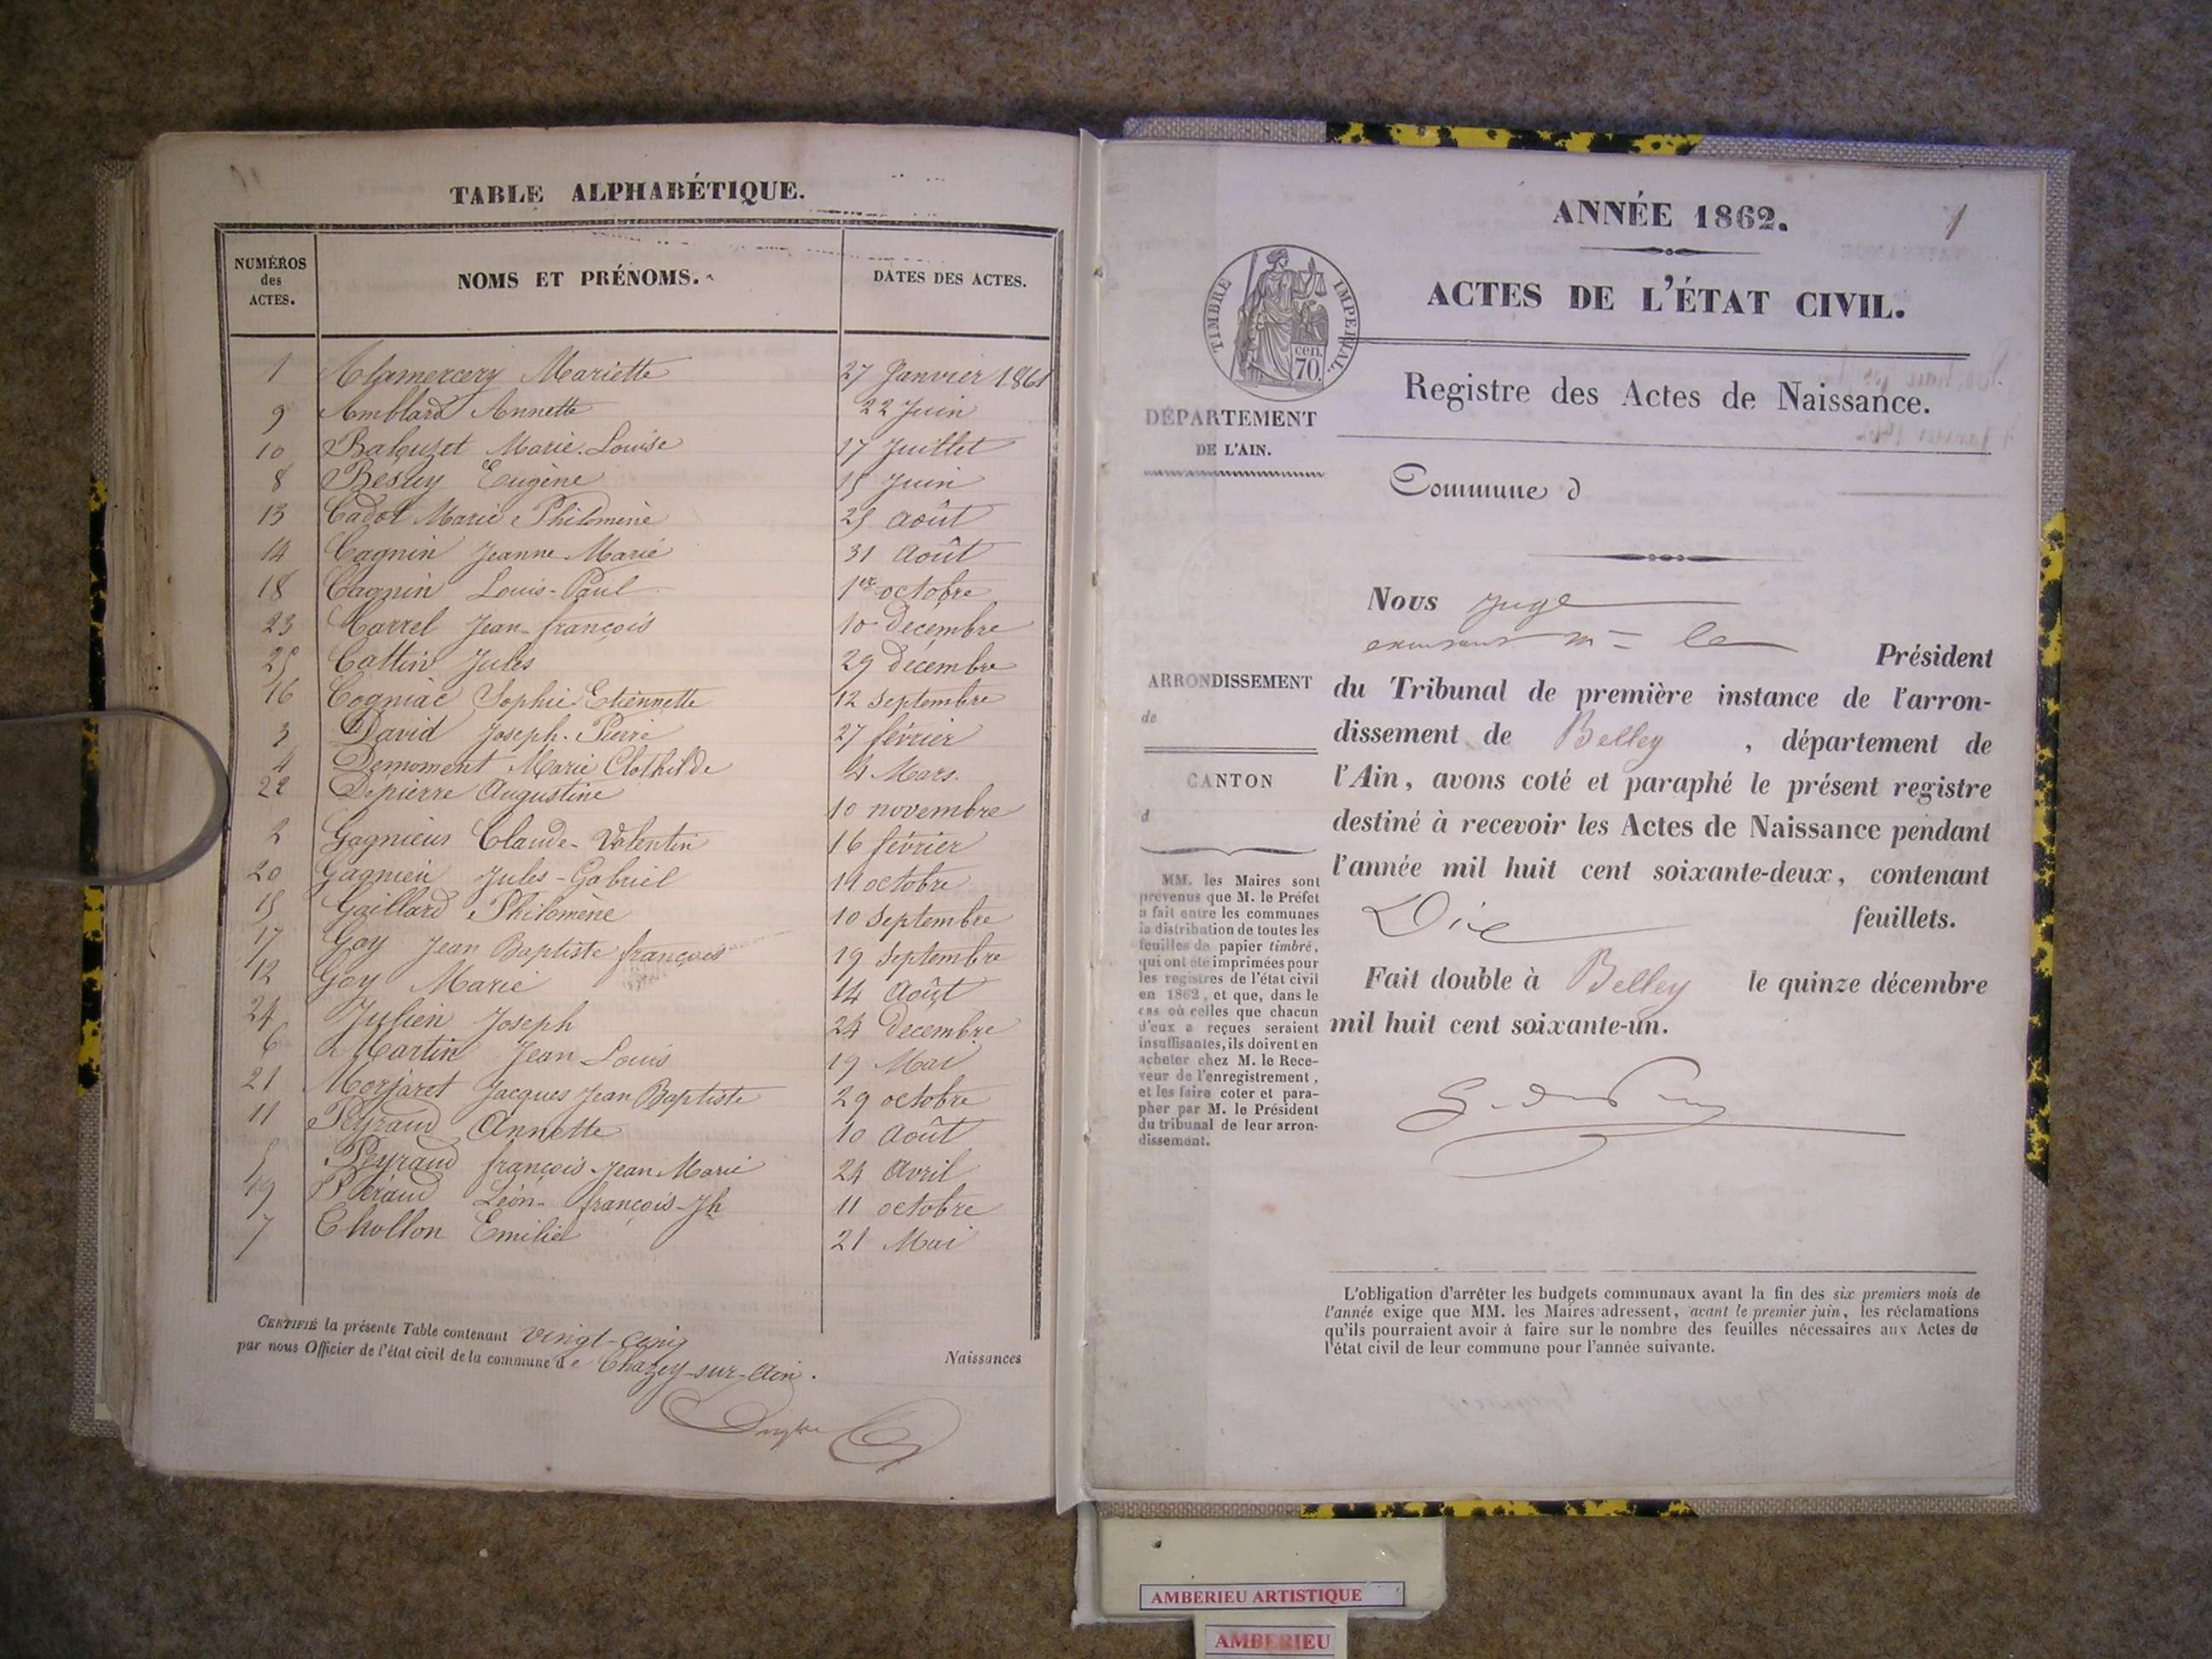 TABLE ALPHABÉTIQUE.
NUMÉROS des ACTES.
NOMS ET PRÉNOMS.
DATES DES ACTES.
1 Alamercery Mariette 27 Janvier 1861
9 Amblard Annette 22 Juin
10 Marie-Louise 17 Juillet
8 Eugène 15 Juin
13 Cadot Marie Philomène 25 août
14 Cagnin Jeanne Marie 31 Août
18 Cagnin Louis-Paul 1er octobre
23 Carrel Jean-françois 10 décembre
25 Cattin Jules 29 décembre
16 Cogniac Sophie Etiennette 12 Septembre
3 David Joseph-Pierre 27 février
4 Demoment Marie Clothilde 4 Mars.
22 Depierre Augustine 10 novembre
2 Gagnieus Claude-Valentin 16 février
20 Gagnieu Jules-Gabriel 14 octobre
15 Gaillard Philomène 10 Septembre
17 Goy Jean Baptiste françois 19 Septembre
12 Goy Marie 14 Août
24 Julien Joseph 24 décembre
6 Martin Jean Louis 19 Mai
21 Morjaret Jacques Jean Baptiste 29 octobre
11 Peyraud Annette 10 Août
5 Peyraud françois-Jean Marie 24 Avril
19 Péraud Léon-françois-Jh 11 octobre
7 Chollon Emilie 21 Mai
CERTIFIÉ la présente Table contenant vingt-cinq Naissances
par nous Officier de l'état civil de la commune de Chazey-sur-Ain.
1
ANNÉE 1862.
ACTES DE L'ÉTAT CIVIL.
TIMBRE IMPERIAL.
cen. 70.
Registre des Actes de Naissance.
DÉPARTEMENT
DE L'AIN.
Commune d
Nous juge
le
Président
ARRONDISSEMENT
de
CANTON
d
du Tribunal de première instance de l'arron-
dissement de Belley , département de
l'Ain, avons coté et paraphé le présent registre
destiné à recevoir les Actes de Naissance pendant
l'année mil huit cent soixante-deux, contenant
Dix feuillets.
Fait double à Belley le quinze décembre
mil huit cent soixante-un.
MM. les Maires sont
prévenus que M. le Préfet
a fait entre les communes
la distribution de toutes les
feuilles de papier timbré,
qui ont été imprimées pour
les registres de l'état civil
en 1862, et que, dans le
cas où celles que chacun
d'eux a reçues seraient
insuffisantes, ils doivent en
acheter chez M. le Rece-
veur de l'enregistrement,
et les faire coter et para-
pher par M. le Président
du tribunal de leur arron-
dissement.
L'obligation d'arrêter les budgets communaux avant la fin des six premiers mois de
l'année exige que MM. les Maires adressent, avant le premier juin, les réclamations
qu'ils pourraient avoir à faire sur le nombre des feuilles nécessaires aux Actes de
l'état civil de leur commune pour l'année suivante.
AMBERIEU ARTISTIQUE
AMBERIEU